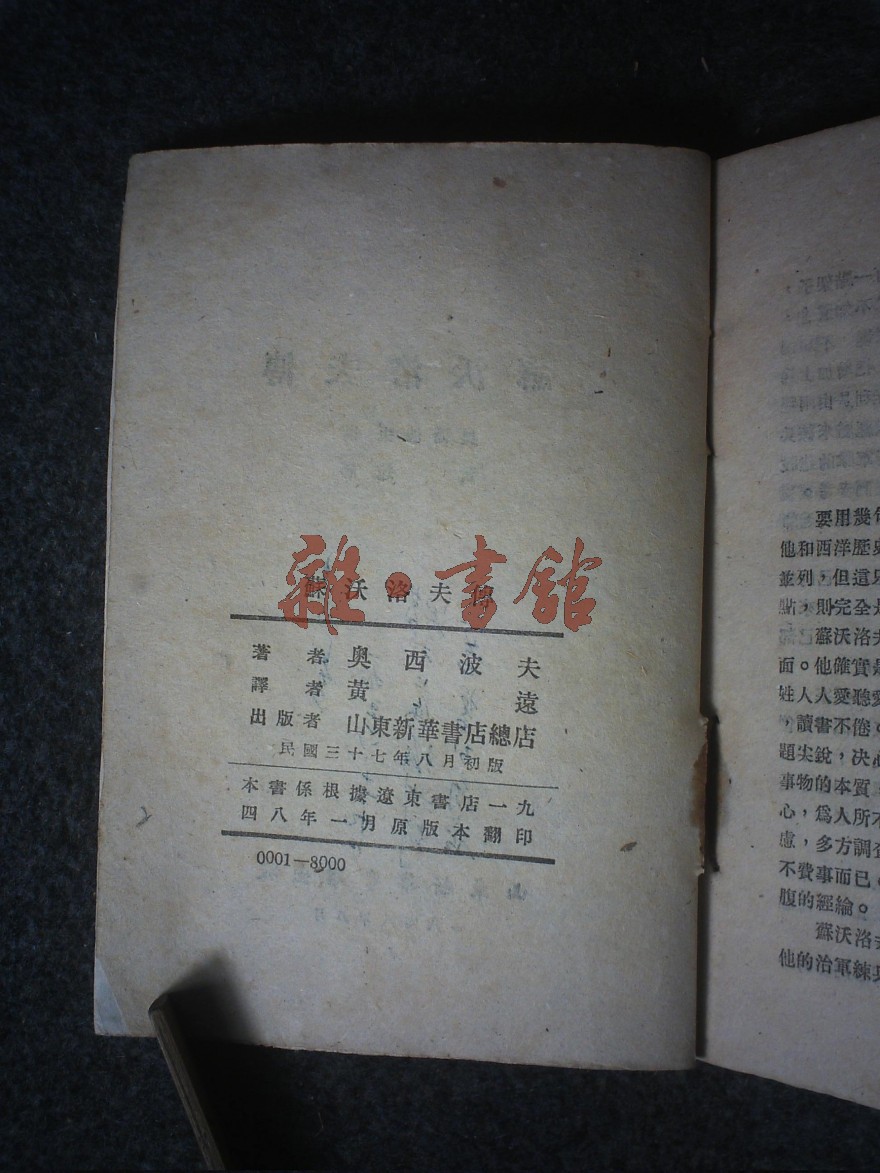 雜·書館
蘇沃洛夫傳
著者 奧西波夫
譯者 黃遠
出版者 山東新華書店總店
民國三十七年八月初版
本書係根據遼東書店一九
四八年一月原版本翻印
0001—8000
要用幾
他和西洋歷史
並列，但這
點，則完全是
蘇沃洛夫
面。他確實是
姓人人愛聽
，讀書不倦。
題尖銳，決心
事物的本質
心，爲人所不
慮，多方調查
不費事而已。
腹的經綸。
蘇沃洛夫
他的治軍練